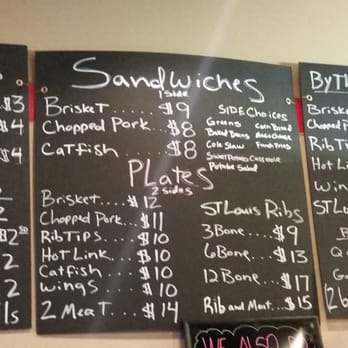 $3
$4
$4
$2.50
2
2
ls
Sandwiches
1 side
Brisket.... $9
Chopped Pork... $8
Catfish..... $8
SIDE Choices
Greens Corn Bread
Baked Beans Mac&Cheese
Cole Slaw French Fries
Sweet Potato Casserole
Potato Salad
PLates
2 sides
Brisket.... $12
Chopped Pork... $11
Rib Tips... $10
Hot Link.... $10
Catfish.... $10
Wings.... $10
2 Meat... $14
ST Louis Ribs
3 Bone... $9
6 Bone... $13
12 Bone... $17
Rib and Meat... $15
By Th
Briske
Chopped
Rib Ti
Hot Lin
Win
ST Lo
WE ALSO